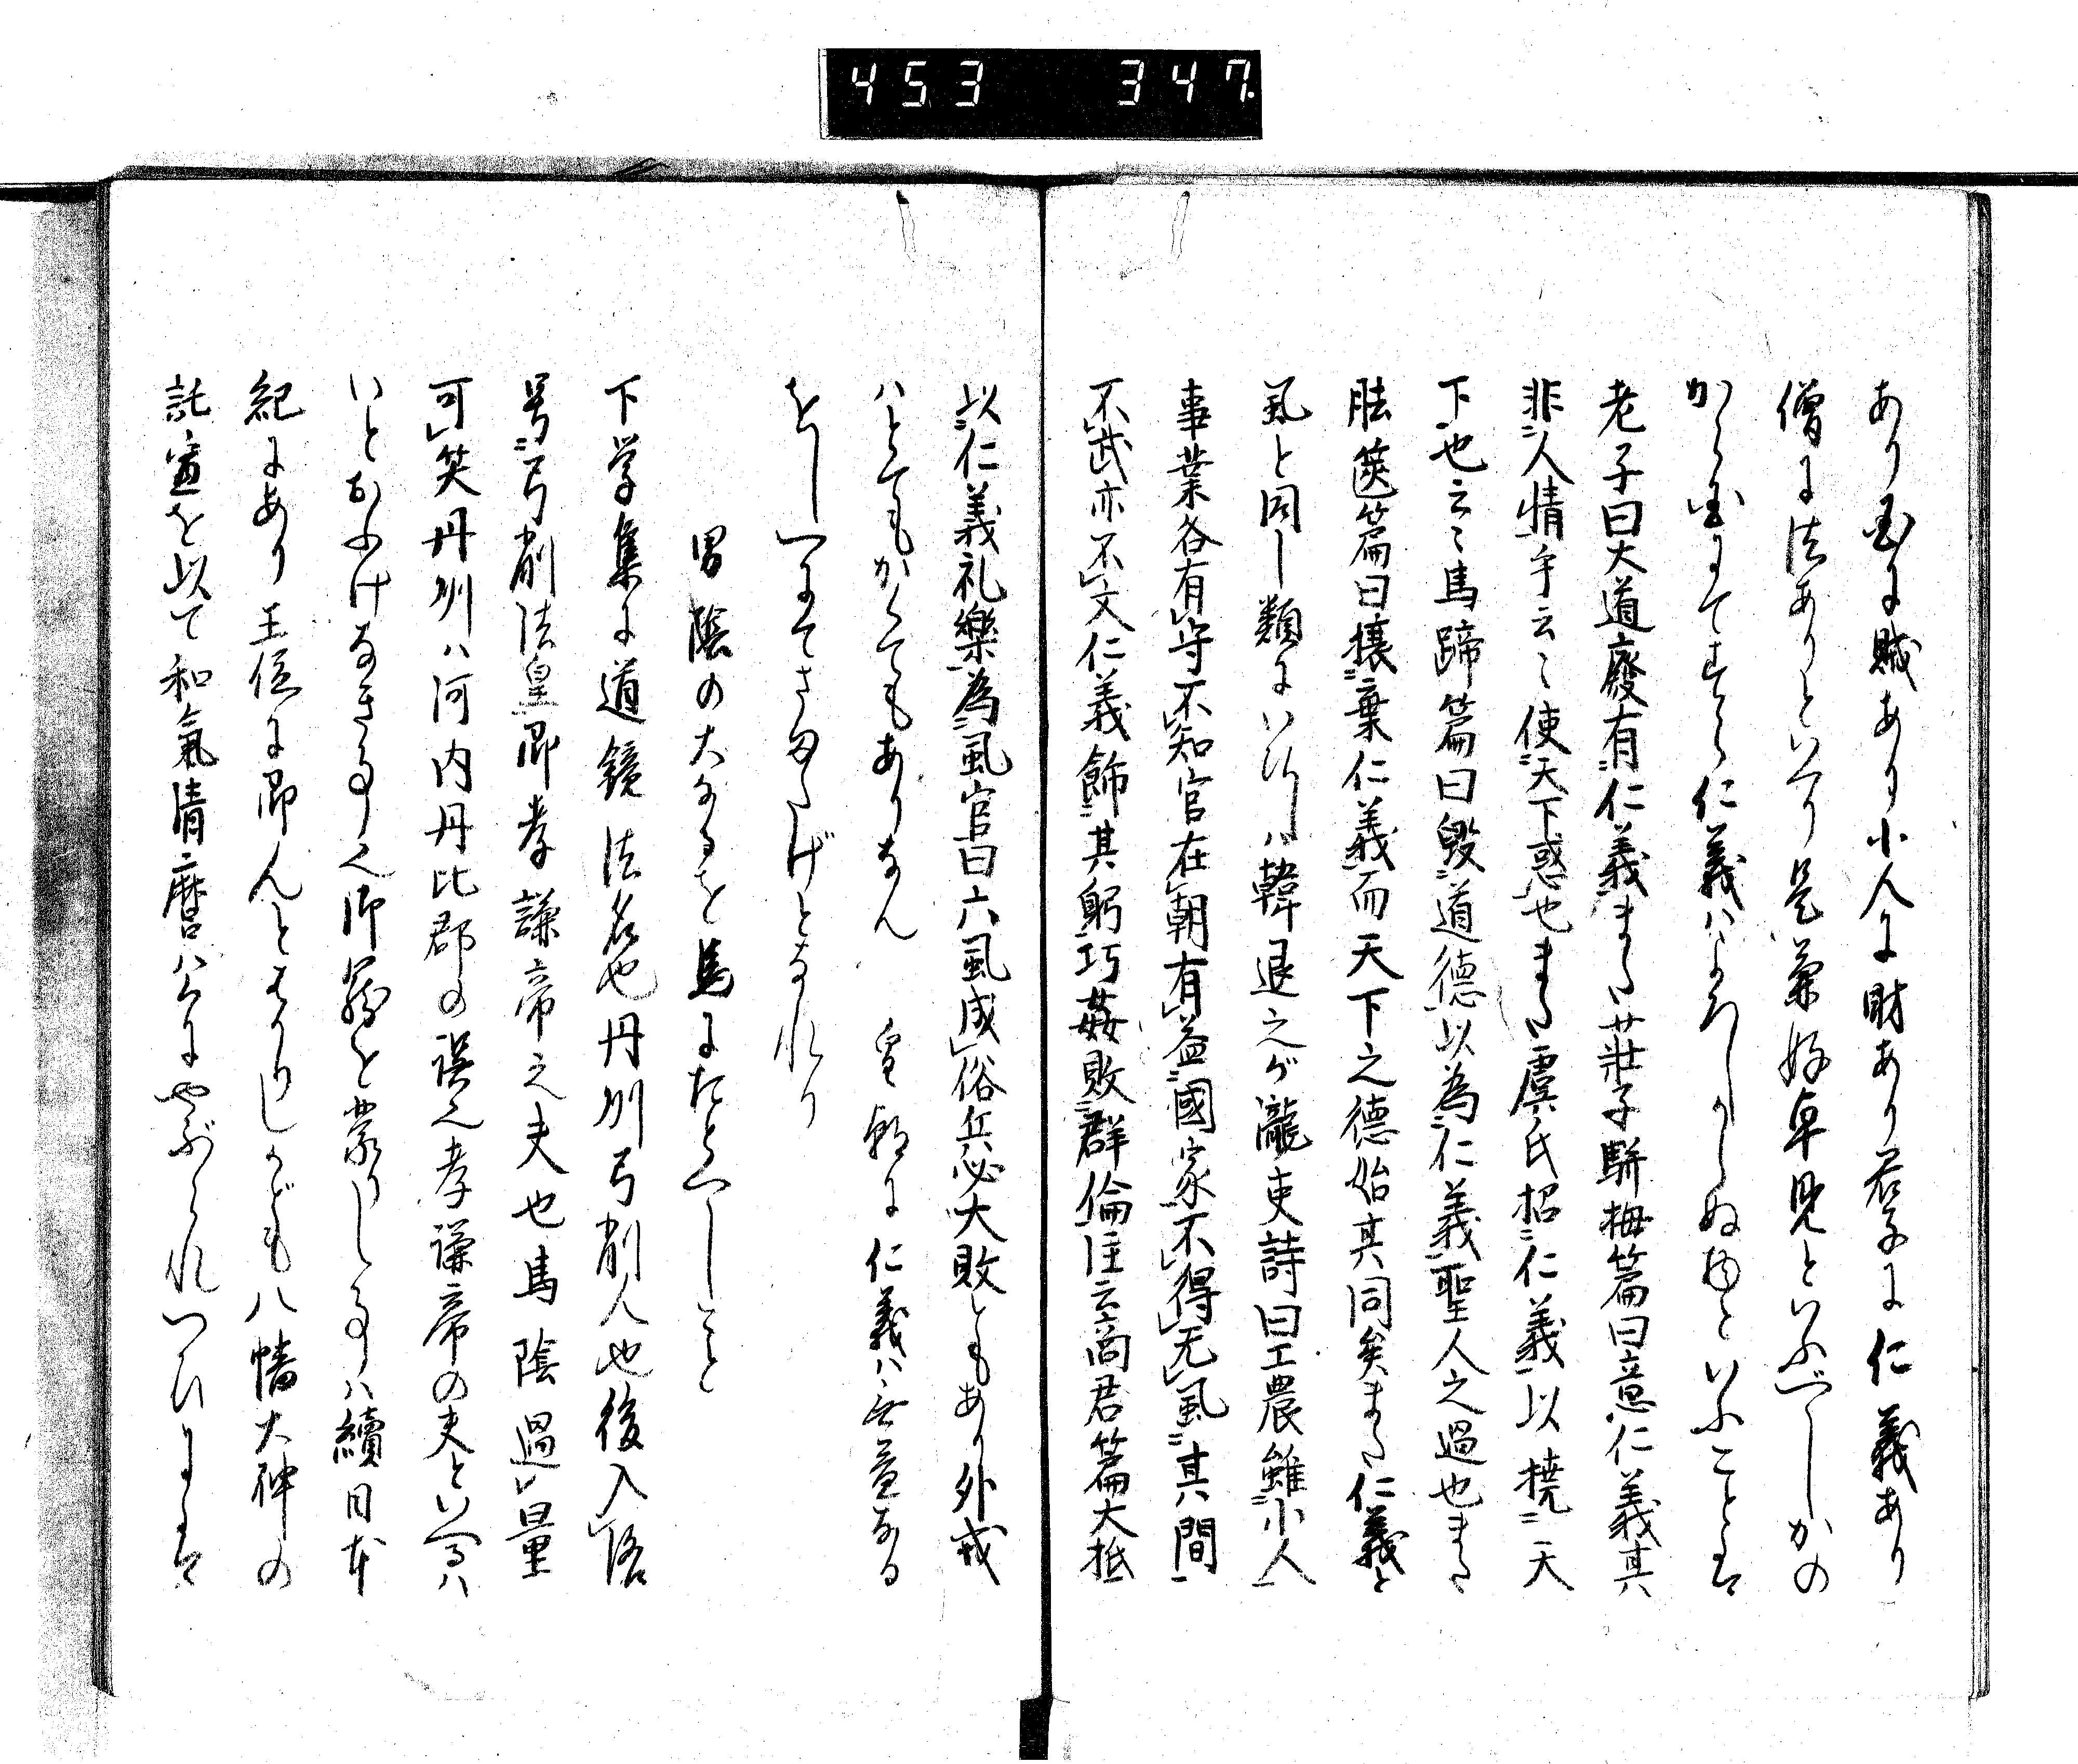 453 347
あり国に賊あり小人に財あり君子に仁義あり
僧に法ありといへり是策好卓見といふべしかの
から国にてすら仁義はよろしからぬものといふことは
老子曰大道廃有仁義また荘子駢拇篇曰意仁義其
非人情乎云々使天下惑也また虞氏招仁義以撓天
下也云々馬蹄篇曰毀道徳以為仁義聖人之過也また
胠篋篇曰攘棄仁義而天下之徳始其同矣また仁義と
虱と同し類にいへるハ韓退之が瀧吏詩曰工農雖小人
事業各有守不知官在朝有益國家不得无虱其間
不武亦不文仁義飾其躬巧姦敗群倫注云商君篇大抵
以仁義礼樂為虱官曰六虱成俗兵必大敗ともあり外戎
ハとてもかくてもありなん 皇朝に仁義ハ無益なる
をしへにてさまたげとなれり
男陰の大なるを馬にたとへしこと
下学集に道鏡法名也丹州弓削人也後入洛
号弓削法皇即孝謙帝之夫也馬陰過ル量
可笑丹州ハ河内丹比郡の誤也孝謙帝の夫といへるハ
いとおふけなきこと也御寵を蒙りしことハ續日本
紀にあり王位に即んとはかりしかども八幡大神の
託宣を以て和氣清麿ハらにやぶられつひには